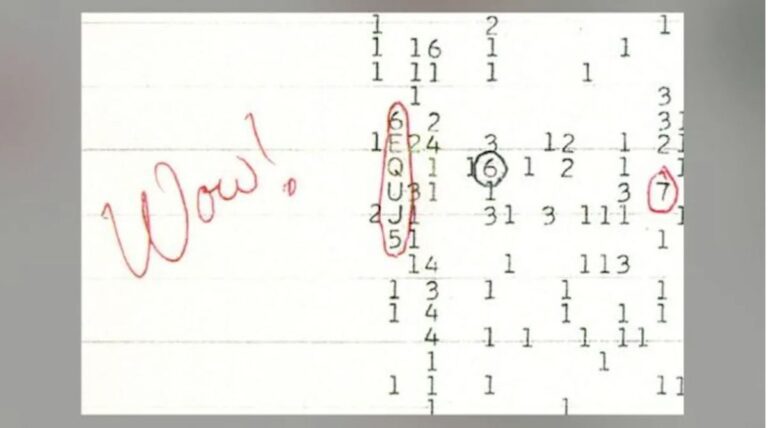 1 2 1
1 16 1 1
1 11 1 1
1 3
6 2 3
1 E 24 3 12 1 2
Wow! Q 1 16 1 2 1 1
U 31 1 3 7
2 J 1 31 3 111 1
5 1 1
14 1 113
1 3 1 1 1
1 4 1 1 1
4 1 1 1 11
1 1
1 1 1 11
1 1